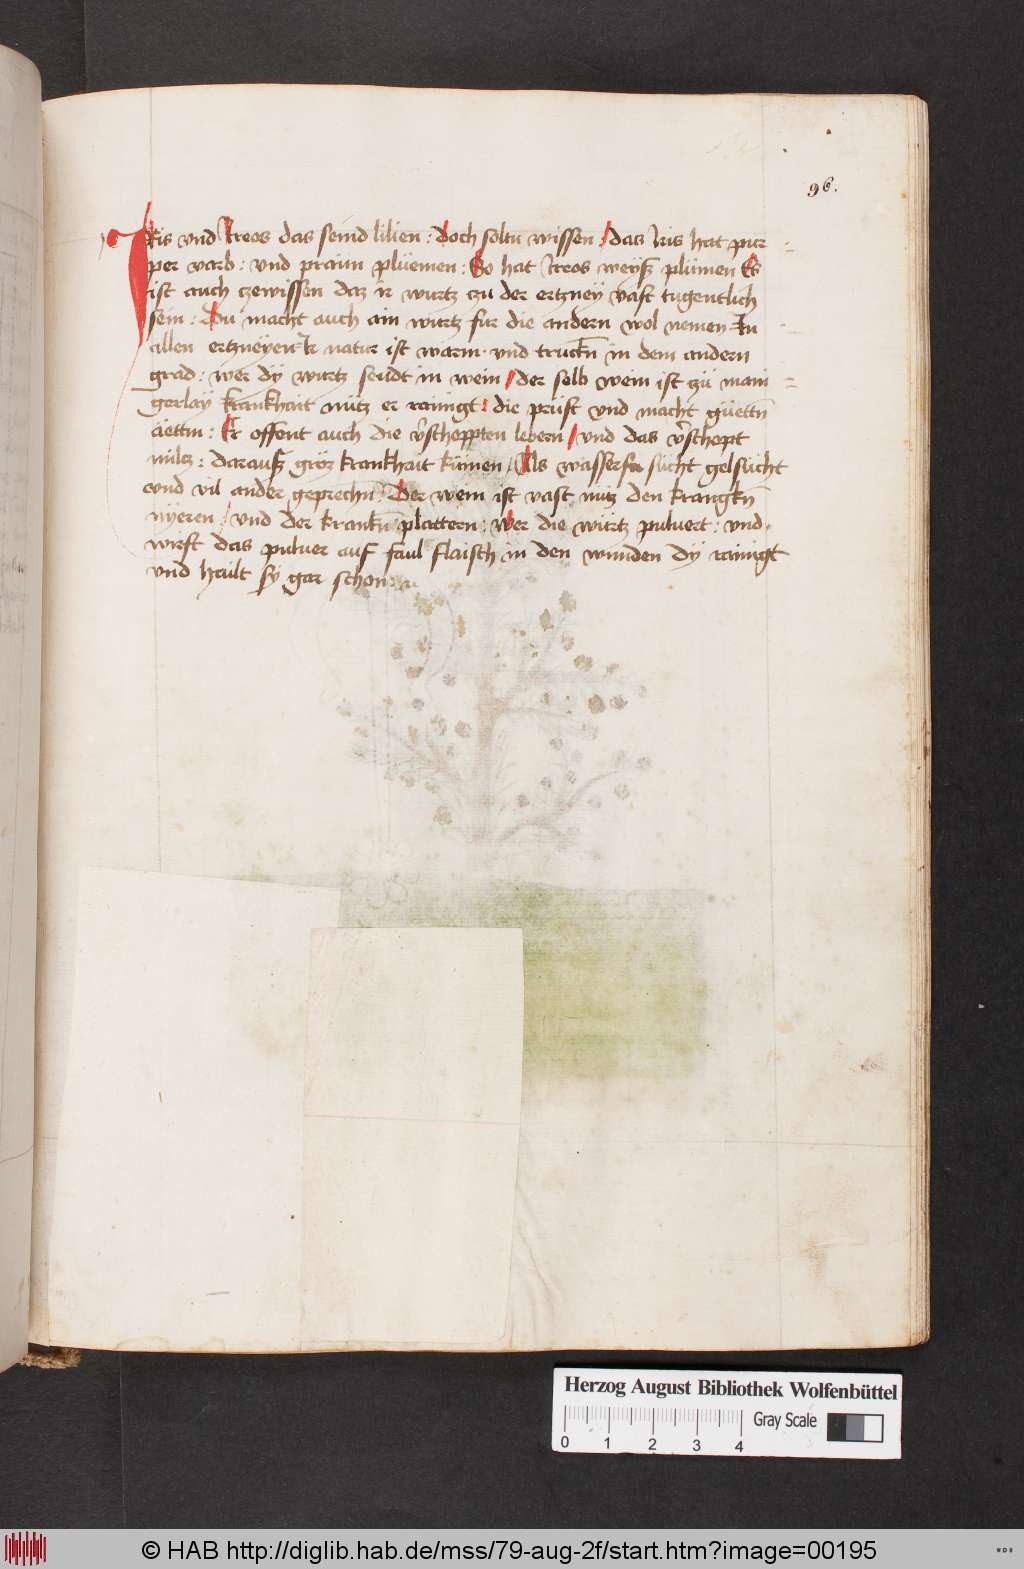 96.
Iris vnd Ireos das seind lilien : doch soltu wissen / das Iris hat pur
per varb : vnd praün plüemen : So hat Ireos weyß plümen Es
ist auch czewissen daz ir wurtz czu der ertzneÿ vast tugentlich
sein : Du macht auch ain wurtz für die andern wol nemen In
allen ertzneÿen Ir natur ist warm · vnd truckn̄ in dem andern
grad : wer dÿ wurtz seudt in wein / der selb wein ist czü mani
gerlaÿ krankhait nütz er rainigt : die prüst vnd macht güettn̄
äettm : Er offent auch die v̄scheppten lebern / vnd das v̄schopt
miltz : darauß gröz krankhait kümen / Als wassersu sücht gelsücht
vnd vil ander geprechn : Der wein ist vast nütz den krangkn̄
nÿeren / vnd der krankn̄ plattern : wer die würtz puluert : vnd
wirft das puluer auf faul flaisch in den wunden dÿ rainigt
vnd hailt sÿ gar schon
Herzog August Bibliothek Wolfenbüttel
Gray Scale
0 1 2 3 4
© HAB http://diglib.hab.de/mss/79-aug-2f/start.htm?image=00195